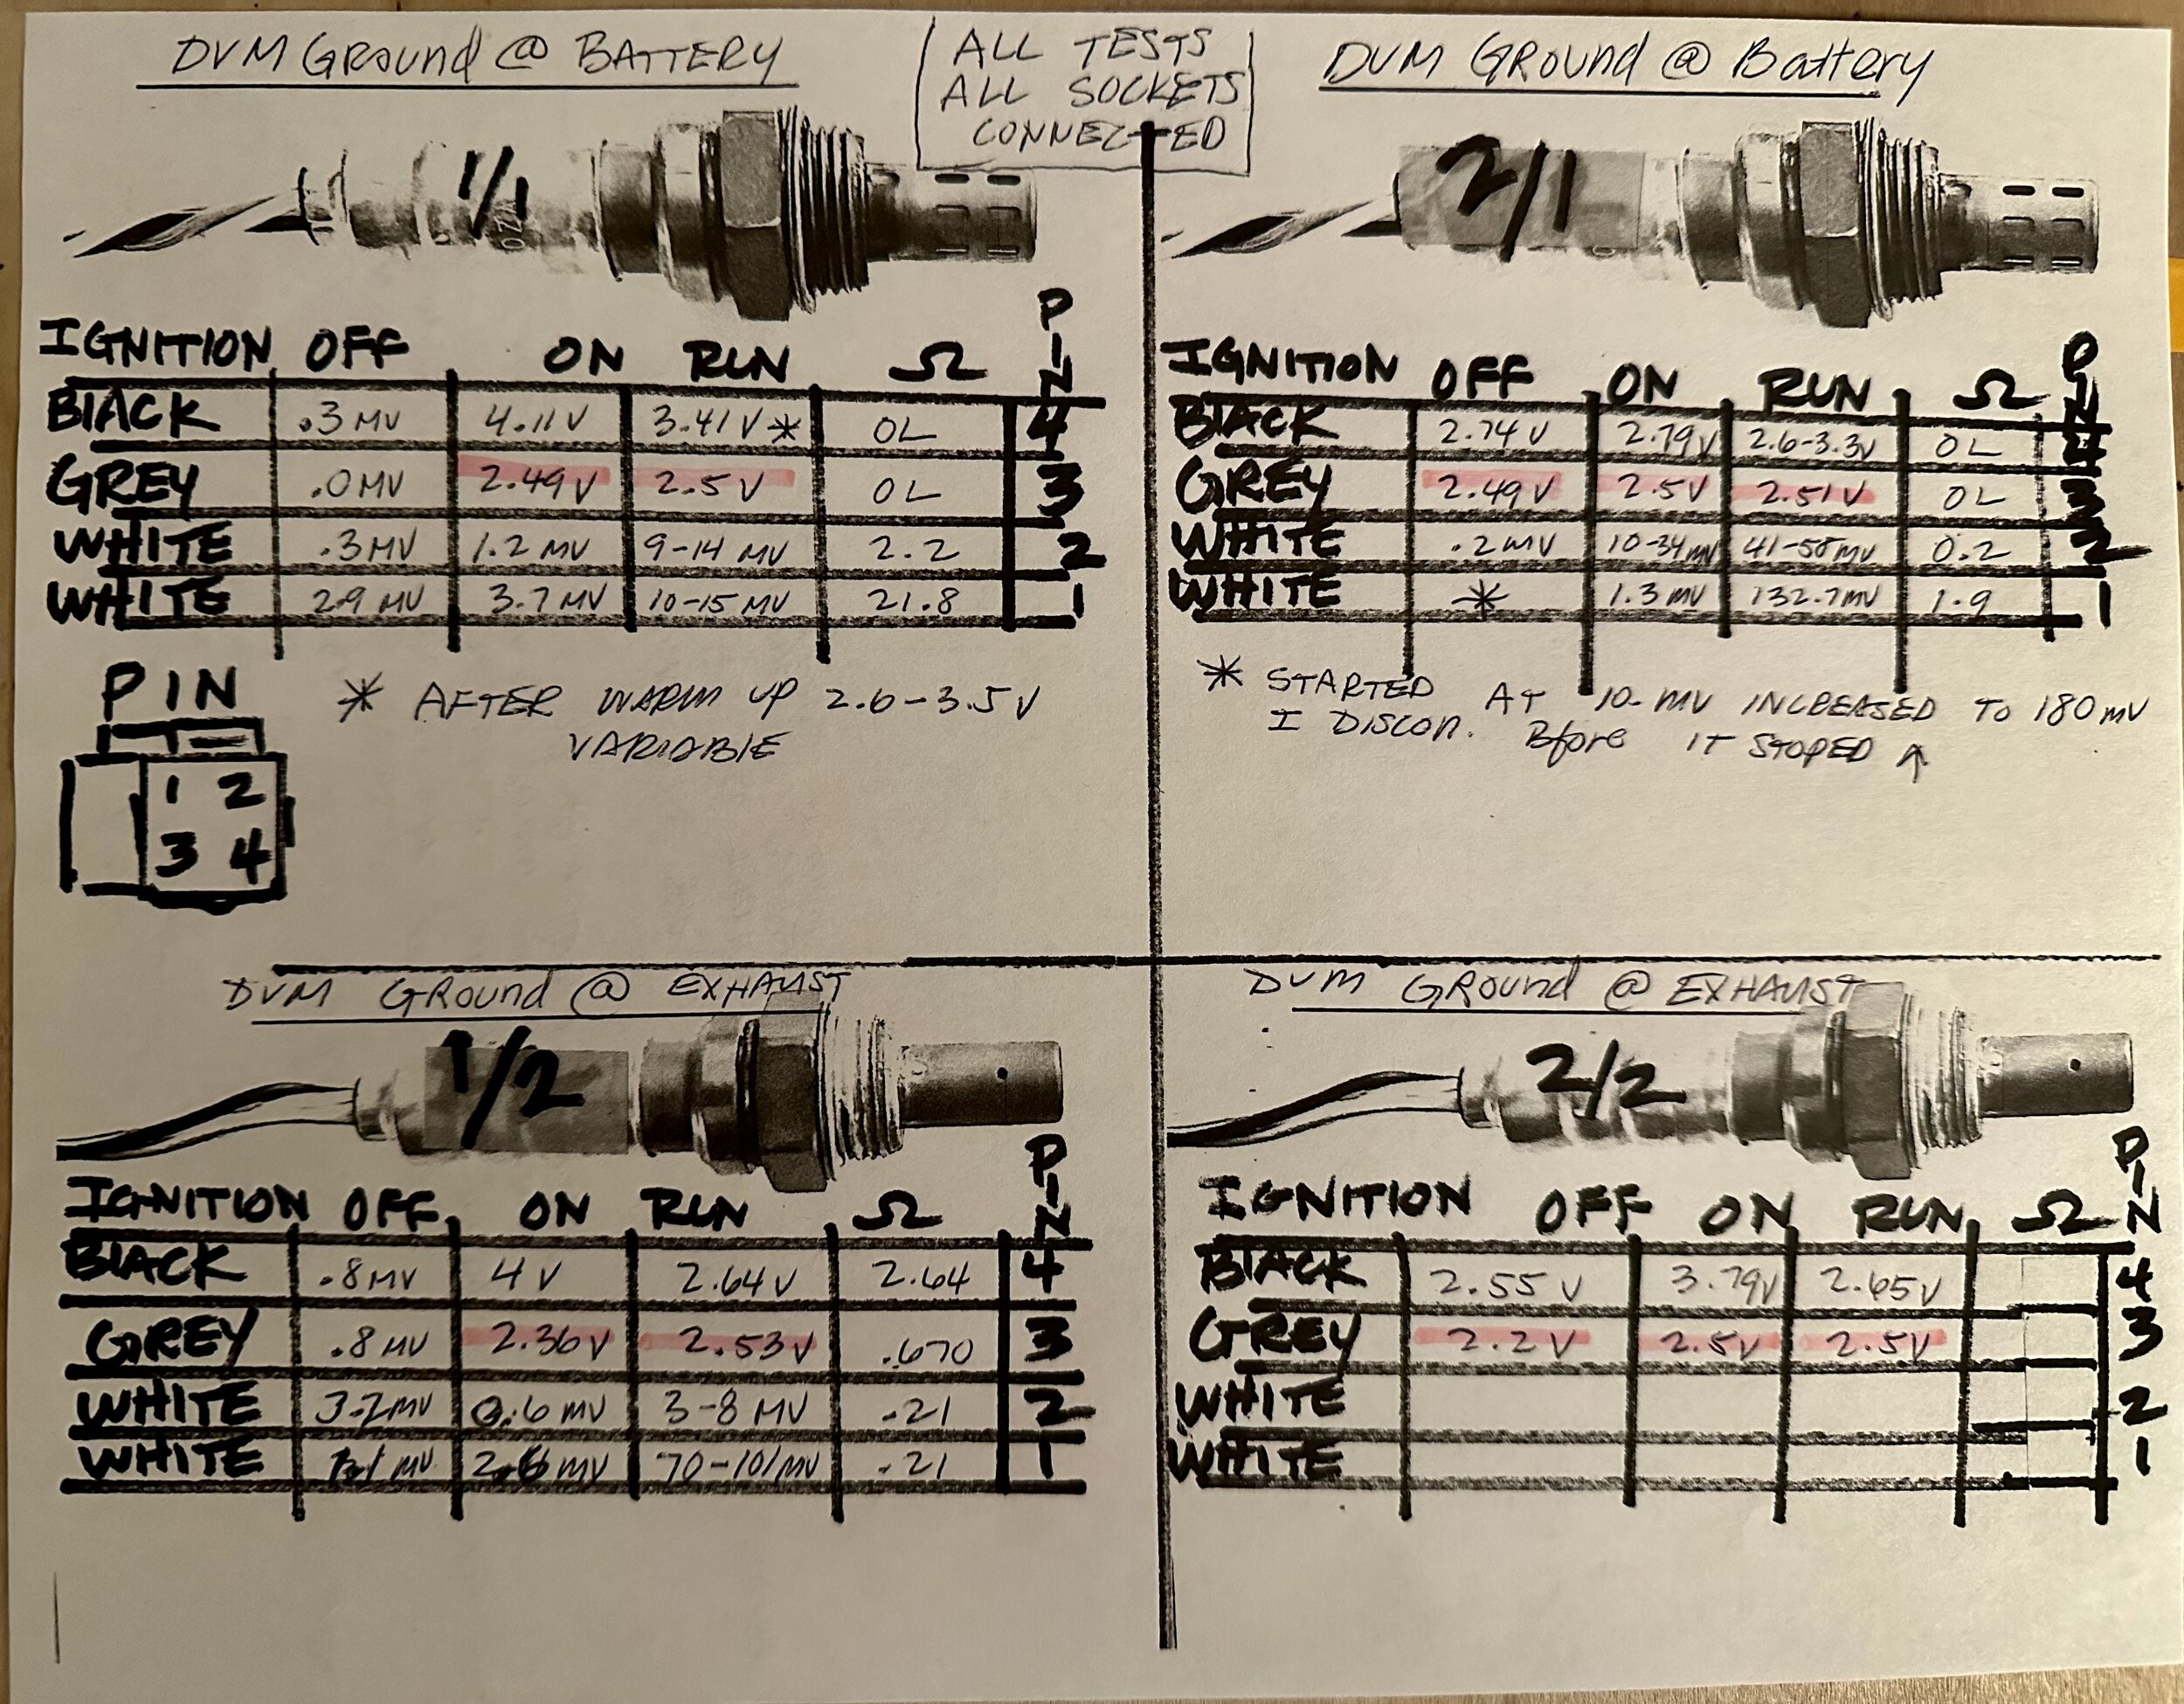 DVM GROUND @ BATTERY
ALL TESTS
ALL SOCKETS
CONNECTED
1/1
P
I
N
IGNITION OFF ON RUN Ω
BLACK .3 MV 4.11 V 3.41 V * OL 4
GREY .0 MV 2.49 V 2.5 V OL 3
WHITE .3 MV 1.2 MV 9-14 MV 2.2 2
WHITE 2.9 MV 3.7 MV 10-15 MV 21.8 1
* AFTER WARM UP 2.6-3.5 V
VARIABLE
PIN
1 2
3 4
DVM GROUND @ Battery
2/1
P
I
N
IGNITION OFF ON RUN Ω
BLACK 2.74 V 2.79 V 2.6-3.3V OL 4
GREY 2.49 V 2.5 V 2.51 V OL 3
WHITE .2 MV 10-34 MV 41-58 MV 0.2 2
WHITE * 1.3 MV 132.7 MV 1.9 1
* STARTED AT 10- MV INCREASED TO 180 MV
I DISCON. Bfore IT STOPED ↑
DVM GROUND @ EXHAUST
1/2
P
I
N
IGNITION OFF ON RUN Ω
BLACK .8 MV 4 V 2.64 V 2.64 4
GREY .8 MV 2.36 V 2.53 V .670 3
WHITE 3.2 MV 0.6 MV 3-8 MV .21 2
WHITE MV 2.6 MV 70-101 MV .21 1
DVM GROUND @ EXHAUST
2/2
P
I
N
IGNITION OFF ON RUN Ω
BLACK 2.55 V 3.79 V 2.65 V 4
GREY 2.2 V 2.5 V 2.5 V 3
WHITE 2
WHITE 1